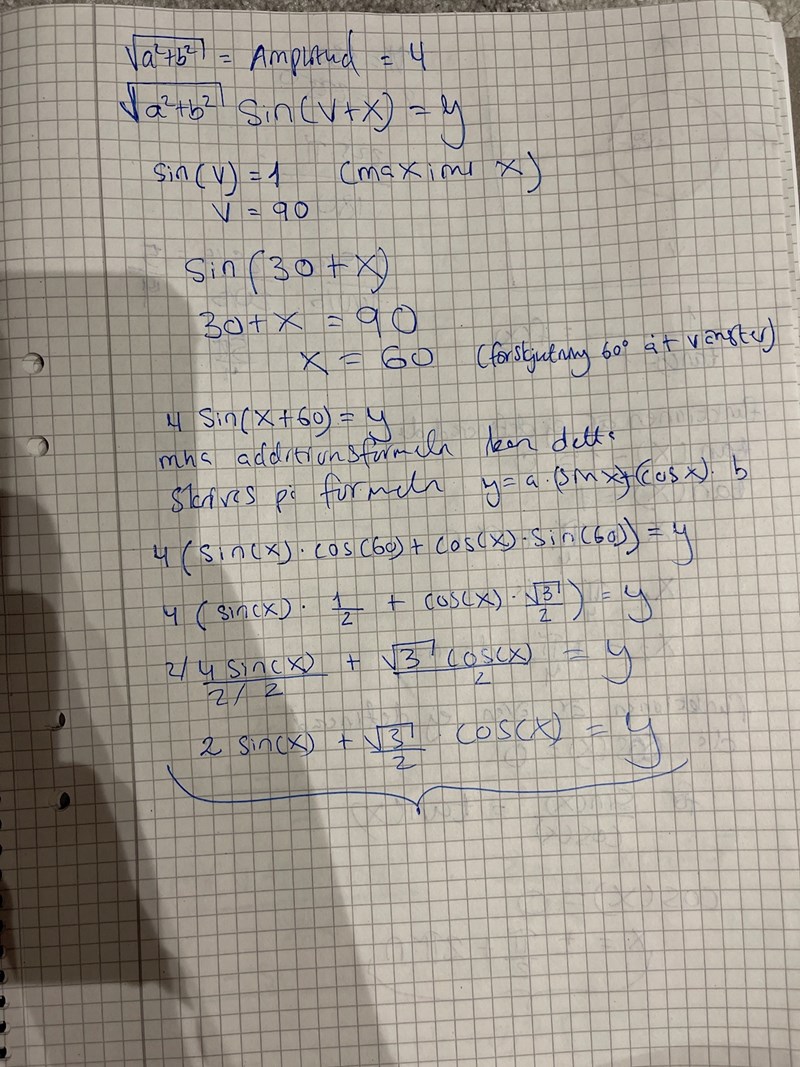 √(a²+b²) = Amplitud = 4
√(a²+b²) sin(v+x) = y
sin(v) = 1 (maximi x)
v = 90
sin(30+x)
30+x = 90
x = 60 (förskjutning 60° åt vänster)
4 sin(x+60) = y
mha additionsformeln kan detta
skrivas på formeln y = a·(sin x)+(cos x)·b
4(sin(x)·cos(60)+cos(x)·sin(60)) = y
4(sin(x)·1/2 + cos(x)·√3/2) = y
2/ 4 sin(x) / 2/ 2 + √3 cos(x)/2 = y
2 sin(x) + √3/2 cos(x) = y